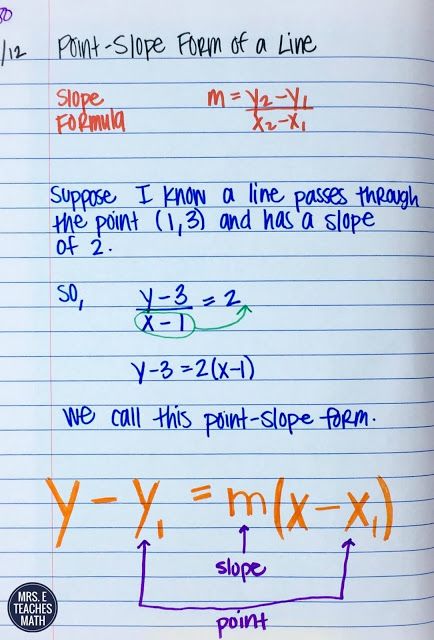 80
/12 Point-Slope Form of a Line
Slope m = y₂-y₁
Formula x₂-x₁
Suppose I know a line passes through
the point (1,3) and has a slope
of 2.
So, y-3 = 2
x-1
y-3 = 2(x-1)
We call this point-slope form.
y - y₁ = m(x - x₁)
slope
point
MRS. E
TEACHES
MATH